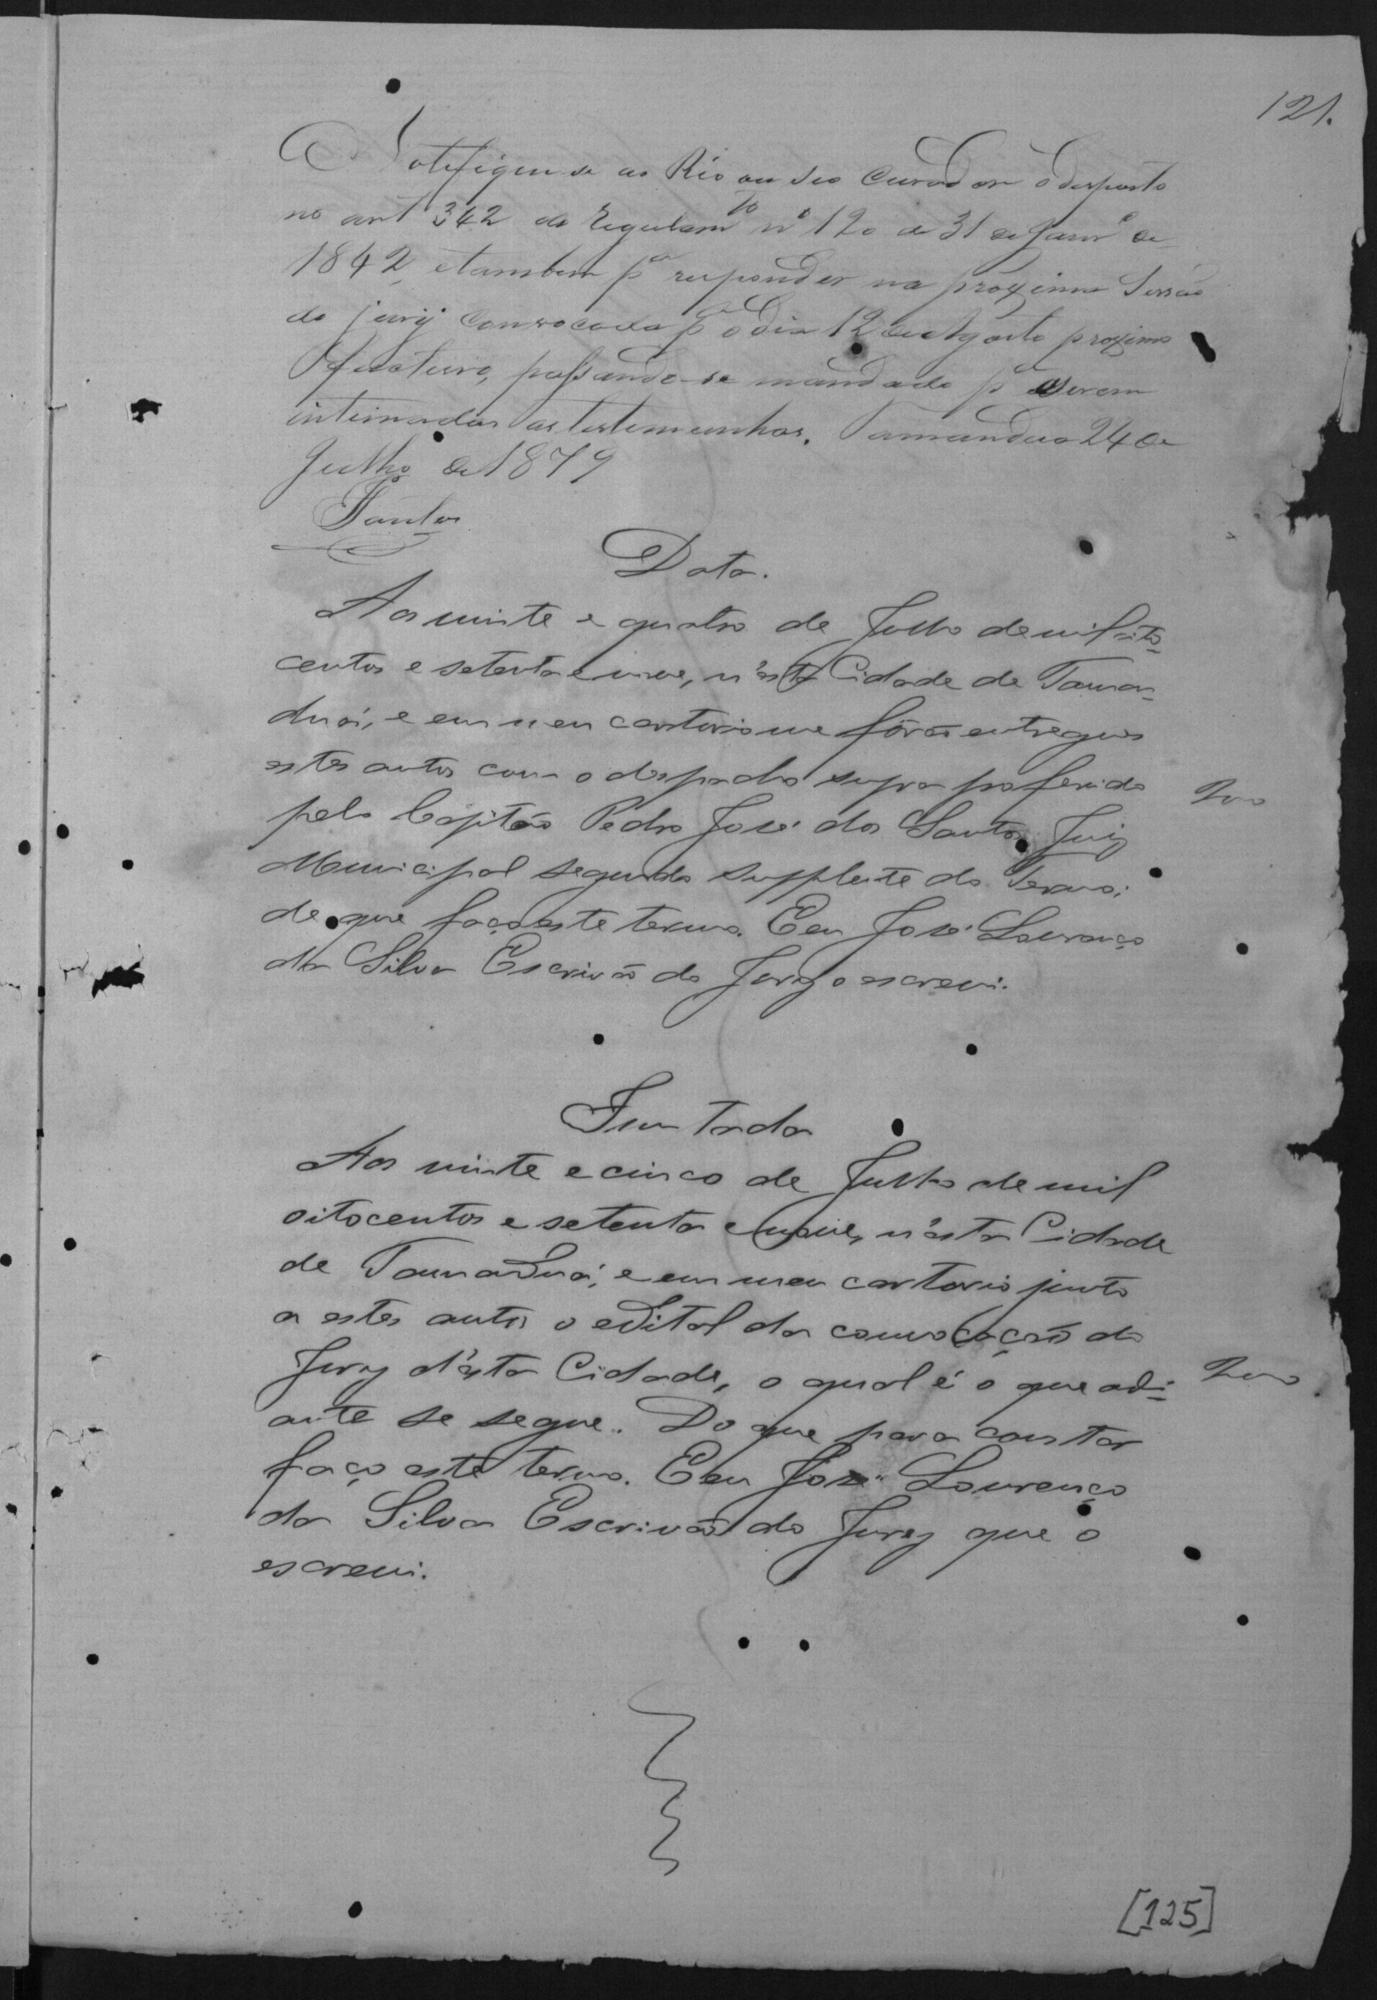 121.
Notifique-se ao Réo ou seo Curador o disposto
no art 342 do Regulamto nº 120 de 31 de Janrº de
1842, e tambem pª responder na proxima Sessão
do jury convocada pª o dia 12 de Agosto proximo
futuro, passando-se mandado pª serem
intimadas as testemunhas. Tamanduá 24 de
Julho de 1879
Santos
Data.
Aos vinte e quatro de Julho de mil oito-
centos e setenta e nove, n'ésta Cidade de Taman-
duá, e em meu cartorio me fôrão entregues
estes autos com o despacho supra proferido
pelo Capitão Pedro José dos Santos, Juiz
Municipal segundo supplente do Termo;
de que faço este termo. Eeu José Lourenço
da Silva Escrivão do Jury o escrevi.
Juntada
Aos vinte e cinco de Julho de mil
oitocentos e setenta e nove, n'ésta Cidade
de Tamanduá, e em meu cartorio junto
a estes autos o edital da convocação do
Jury d'ésta Cidade, o qual é o que adi-
ante se segue. Do que para constar
faço este termo. Eeu José Lourenço
da Silva Escrivão do Jury que o
escrevi.
[125]